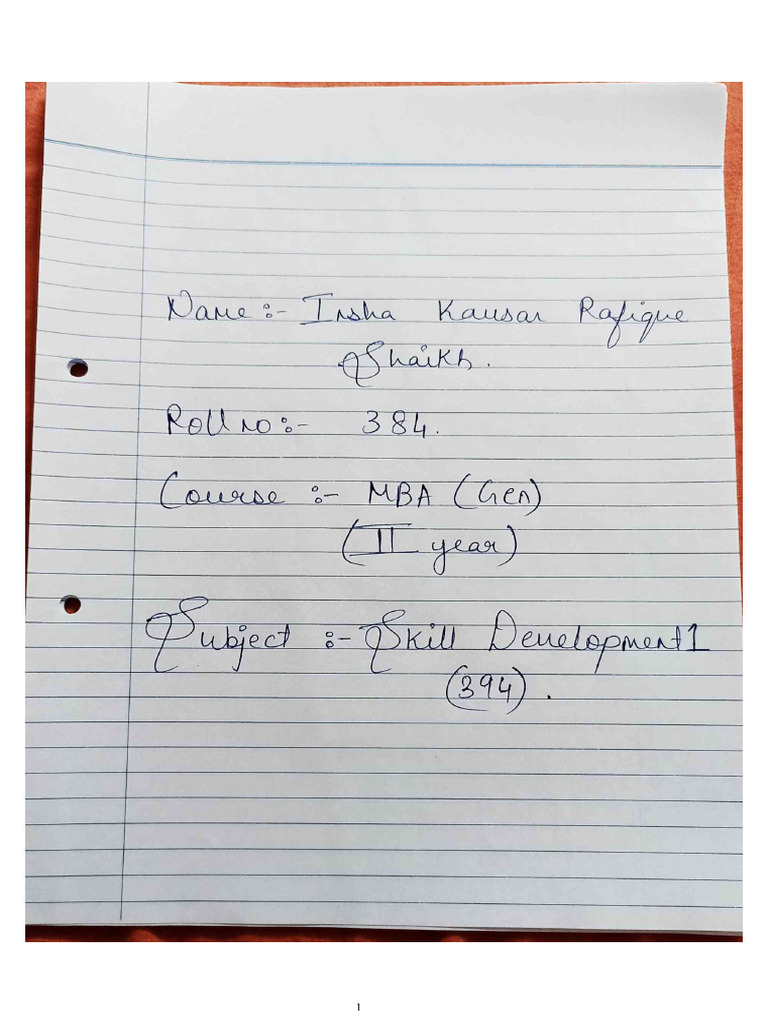 Name:- Insha Kausar Rafique
Shaikh.
Roll no:- 384.
Course :- MBA (Gen)
(II year)
Subject :- Skill Development 1
(394).
1